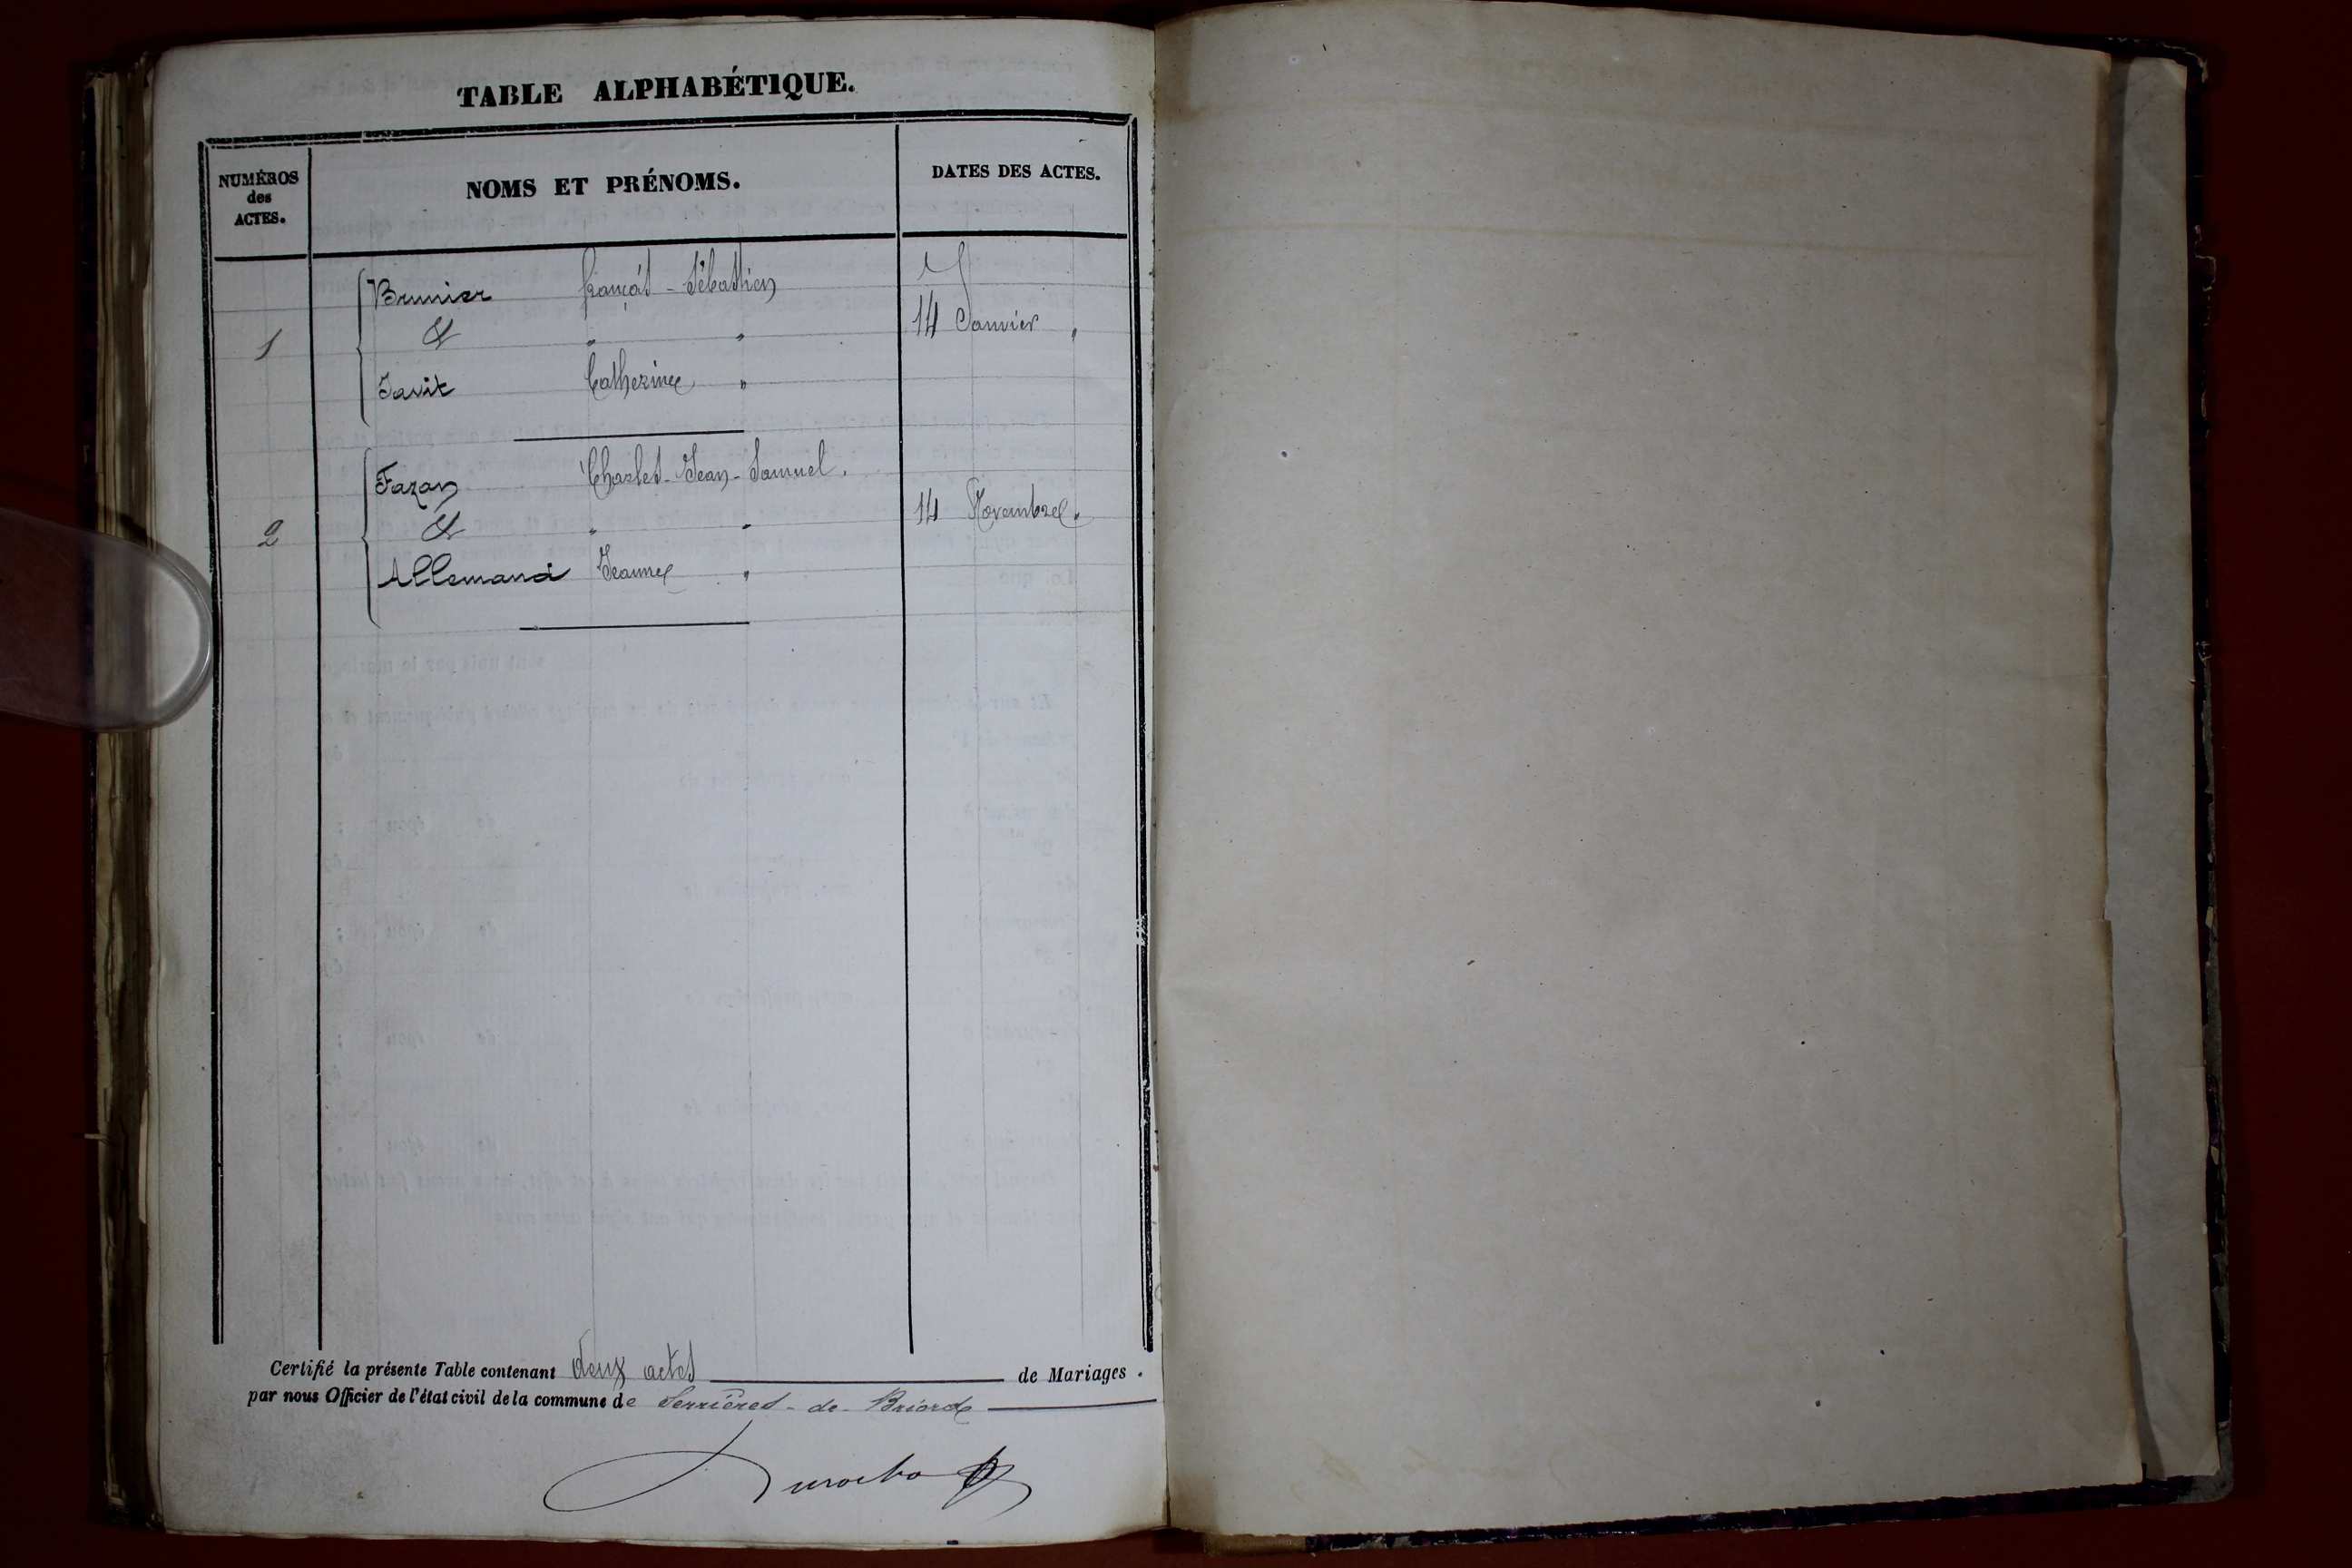 TABLE ALPHABÉTIQUE.
NUMÉROS des ACTES.
NOMS ET PRÉNOMS.
DATES DES ACTES.
Brunier françois - Sébastien
1 & " " 14 Janvier "
Javit Catherine "
Fazan Charles - Jean - Samuel.
2 & " " 14 Novembre "
Allemand Jeanne "
Certifié la présente Table contenant deux actes de Mariages.
par nous Officier de l'état civil de la commune de Serrières - de - Briord